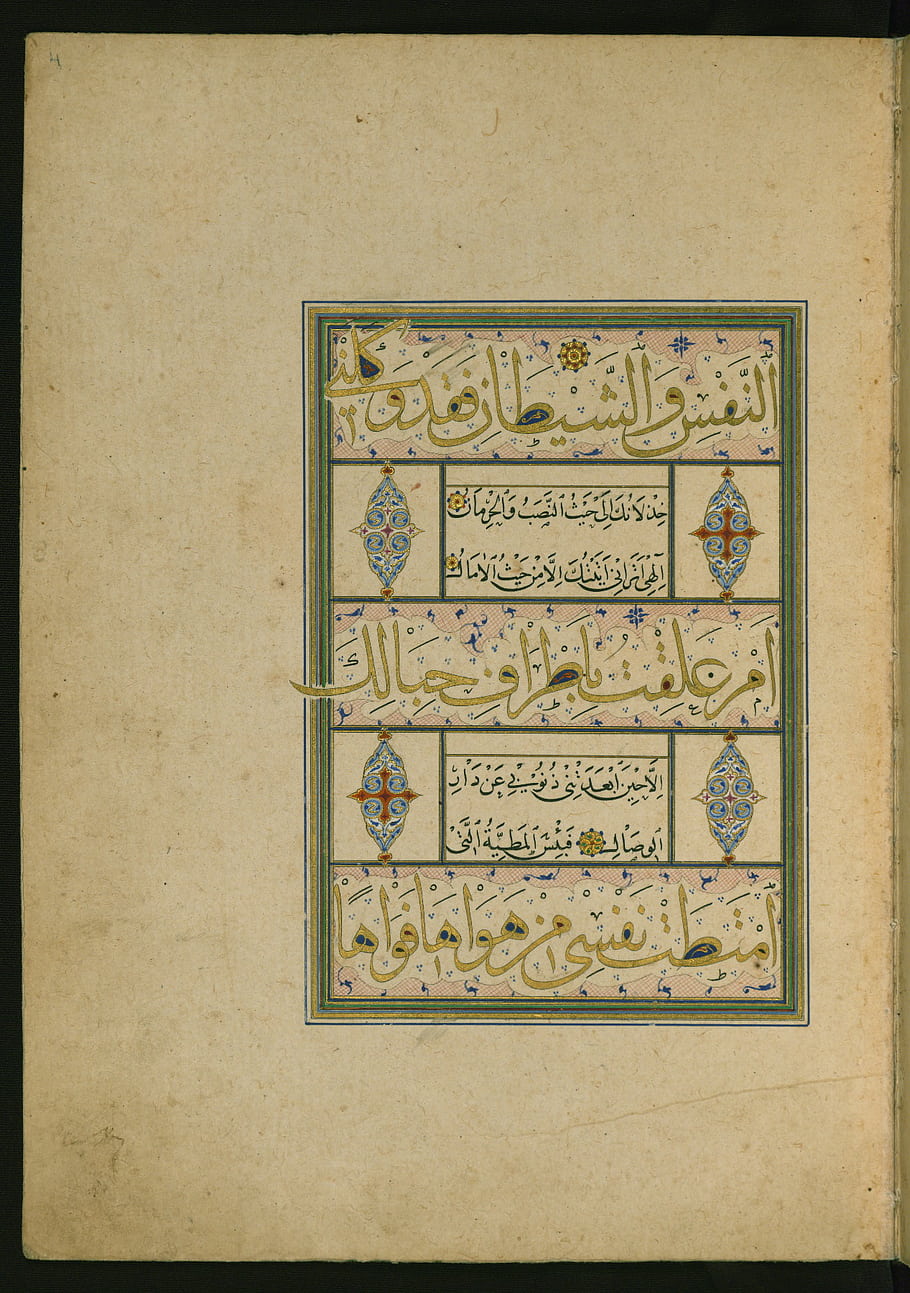 4
اَلنَّفْسِ وَالشَّيْطَانِ فَقَدْ وَكَلَنِي
خِذْلَانُكَ اِلَى حَيْثُ النَّصَبُ وَالْحِرْمَانُ
اِلٰهِي اَتَرَانِي اَتَيْتُكَ اِلَّا مِنْ حَيْثُ الْاٰمَالُ
اَمْ عَلِقْتُ بِاَطْرَافِ حِبَالِكَ
اِلَّا حِيْنَ اَبْعَدَتْنِي ذُنُوْبِي عَنْ دَارِ
الْوِصَالِ فَبِئْسَ الْمَطِيَّةُ الَّتِيْ
امْتَطَتْ نَفْسِي مِنْ هَوَاهَا فَوَاهًا